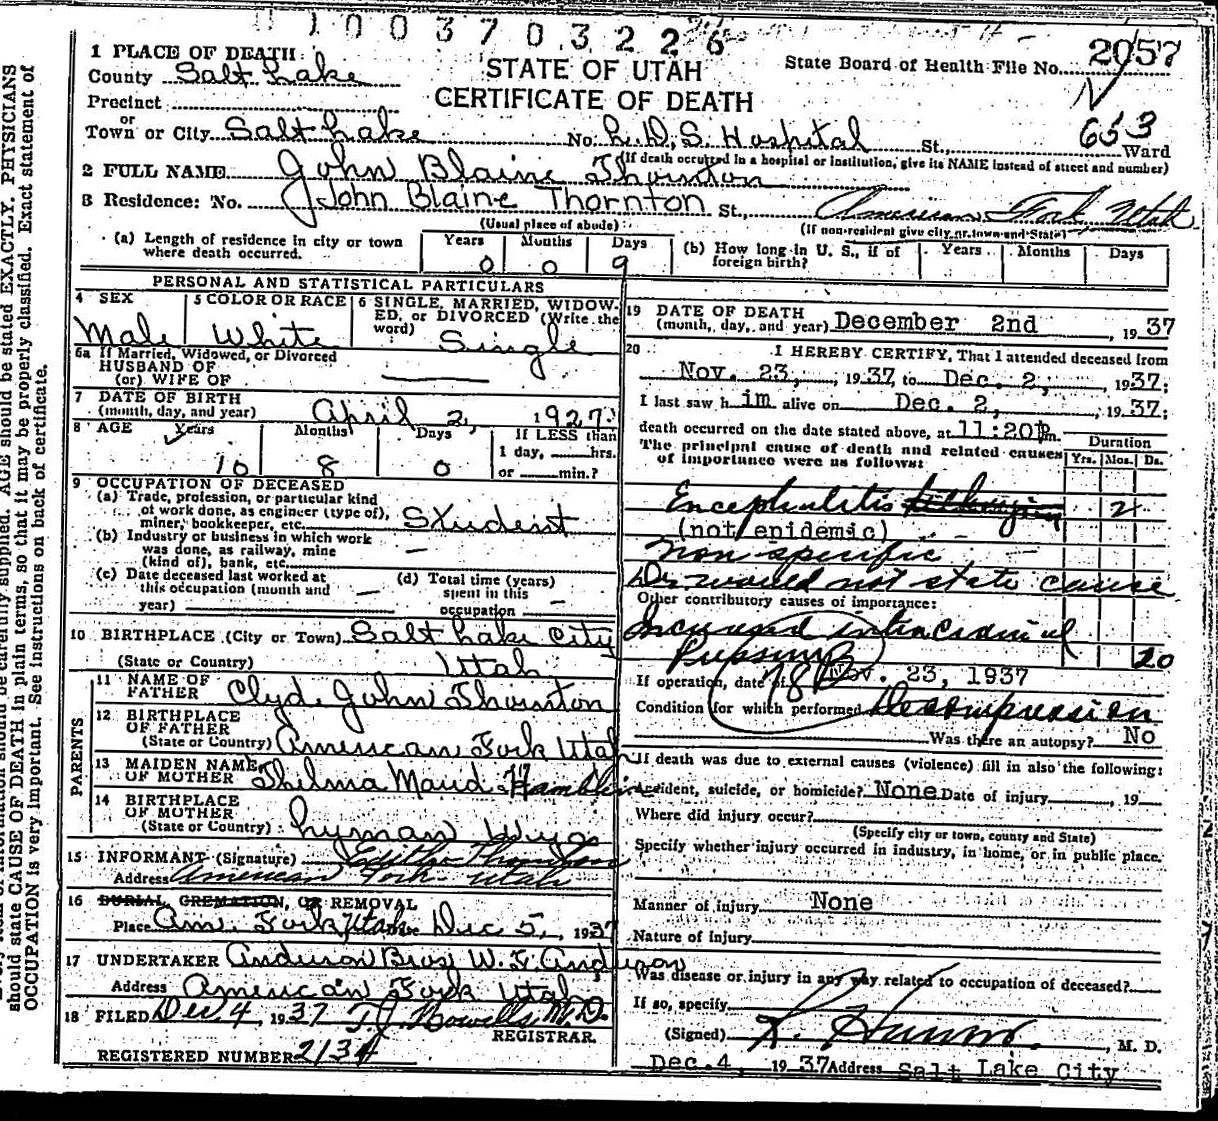 1003703226
1 PLACE OF DEATH
STATE OF UTAH
State Board of Health File No. 2057
County Salt Lake
CERTIFICATE OF DEATH
Precinct
or
Town or City Salt Lake No. L.D.S. Hospital St., 653 Ward
(If death occurred in a hospital or institution, give its NAME instead of street and number)
2 FULL NAME John Blaine Thornton
3 Residence: No. John Blaine Thornton St., American Fork Utah
(Usual place of abode) (If non-resident give city or town and State)
(a) Length of residence in city or town where death occurred. Years 0 Months 0 Days 9
(b) How long in U. S., if of foreign birth? Years Months Days
PERSONAL AND STATISTICAL PARTICULARS
4 SEX Male
5 COLOR OR RACE White
6 SINGLE, MARRIED, WIDOWED, or DIVORCED (Write the word) Single
6a If Married, Widowed, or Divorced
HUSBAND OF
(or) WIFE OF
7 DATE OF BIRTH
(month, day, and year) April 2, 1927
8 AGE Years 10 Months 8 Days 0
If LESS than 1 day, hrs. or min.?
9 OCCUPATION OF DECEASED
(a) Trade, profession, or particular kind of work done, as engineer (type of), miner, bookkeeper, etc. Student
(b) Industry or business in which work was done, as railway, mine (kind of), bank, etc. —
(c) Date deceased last worked at this occupation (month and year) —
(d) Total time (years) spent in this occupation —
10 BIRTHPLACE (City or Town) Salt Lake City
(State or Country) Utah
PARENTS
11 NAME OF FATHER Clyde John Thornton
12 BIRTHPLACE OF FATHER
(State or Country) American Fork Utah
13 MAIDEN NAME OF MOTHER Thelma Maud Hamblin
14 BIRTHPLACE OF MOTHER
(State or Country) Lyman Wyo
15 INFORMANT (Signature) Edith Thornton
Address American Fork Utah
16 BURIAL, CREMATION, OR REMOVAL
Place Am. Fork, Utah Dec 5, 1937
17 UNDERTAKER Anderson Bros. W. F. Anderson
Address American Fork Utah
18 FILED Dec 4, 1937 T.J. Howells M.D.
REGISTRAR.
REGISTERED NUMBER 2134
19 DATE OF DEATH
(month, day, and year) December 2nd, 1937
20 I HEREBY CERTIFY, That I attended deceased from
Nov. 23, 1937, to Dec. 2, 1937;
I last saw him alive on Dec. 2, 1937;
death occurred on the date stated above, at 11:20P m.
The principal cause of death and related causes of importance were as follows:
Duration
Yrs. Mos. Ds.
Encephalitis 2
(not epidemic)
Non specific
Dr. would not state cause
Other contributory causes of importance:
Increased intracranial
Pressure 10
78B
If operation, date of Nov. 23, 1937
Condition for which performed Decompression
Was there an autopsy? No
If death was due to external causes (violence) fill in also the following:
Accident, suicide, or homicide? None Date of injury , 19
Where did injury occur?
(Specify city or town, county and State)
Specify whether injury occurred in industry, in home, or in public place.
Manner of injury None
Nature of injury
Was disease or injury in any way related to occupation of deceased?
If so, specify
(Signed) , M. D.
Dec. 4, 1937 Address Salt Lake City
should state CAUSE OF DEATH in plain terms, so that it may be properly classified. Exact statement of
OCCUPATION is very important. See instructions on back of certificate.
AGE should be stated EXACTLY. PHYSICIANS